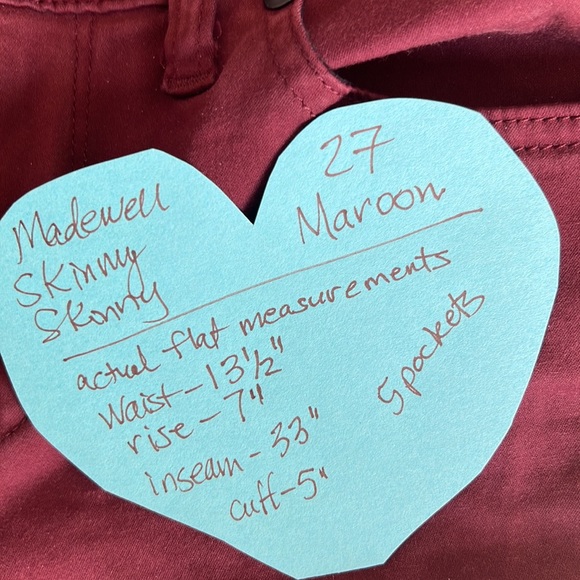 Madewell
Skinny
Skinny
27
Maroon
actual flat measurements
Waist - 13 1/2"
rise - 7"
inseam - 33"
cuff - 5"
5 pockets